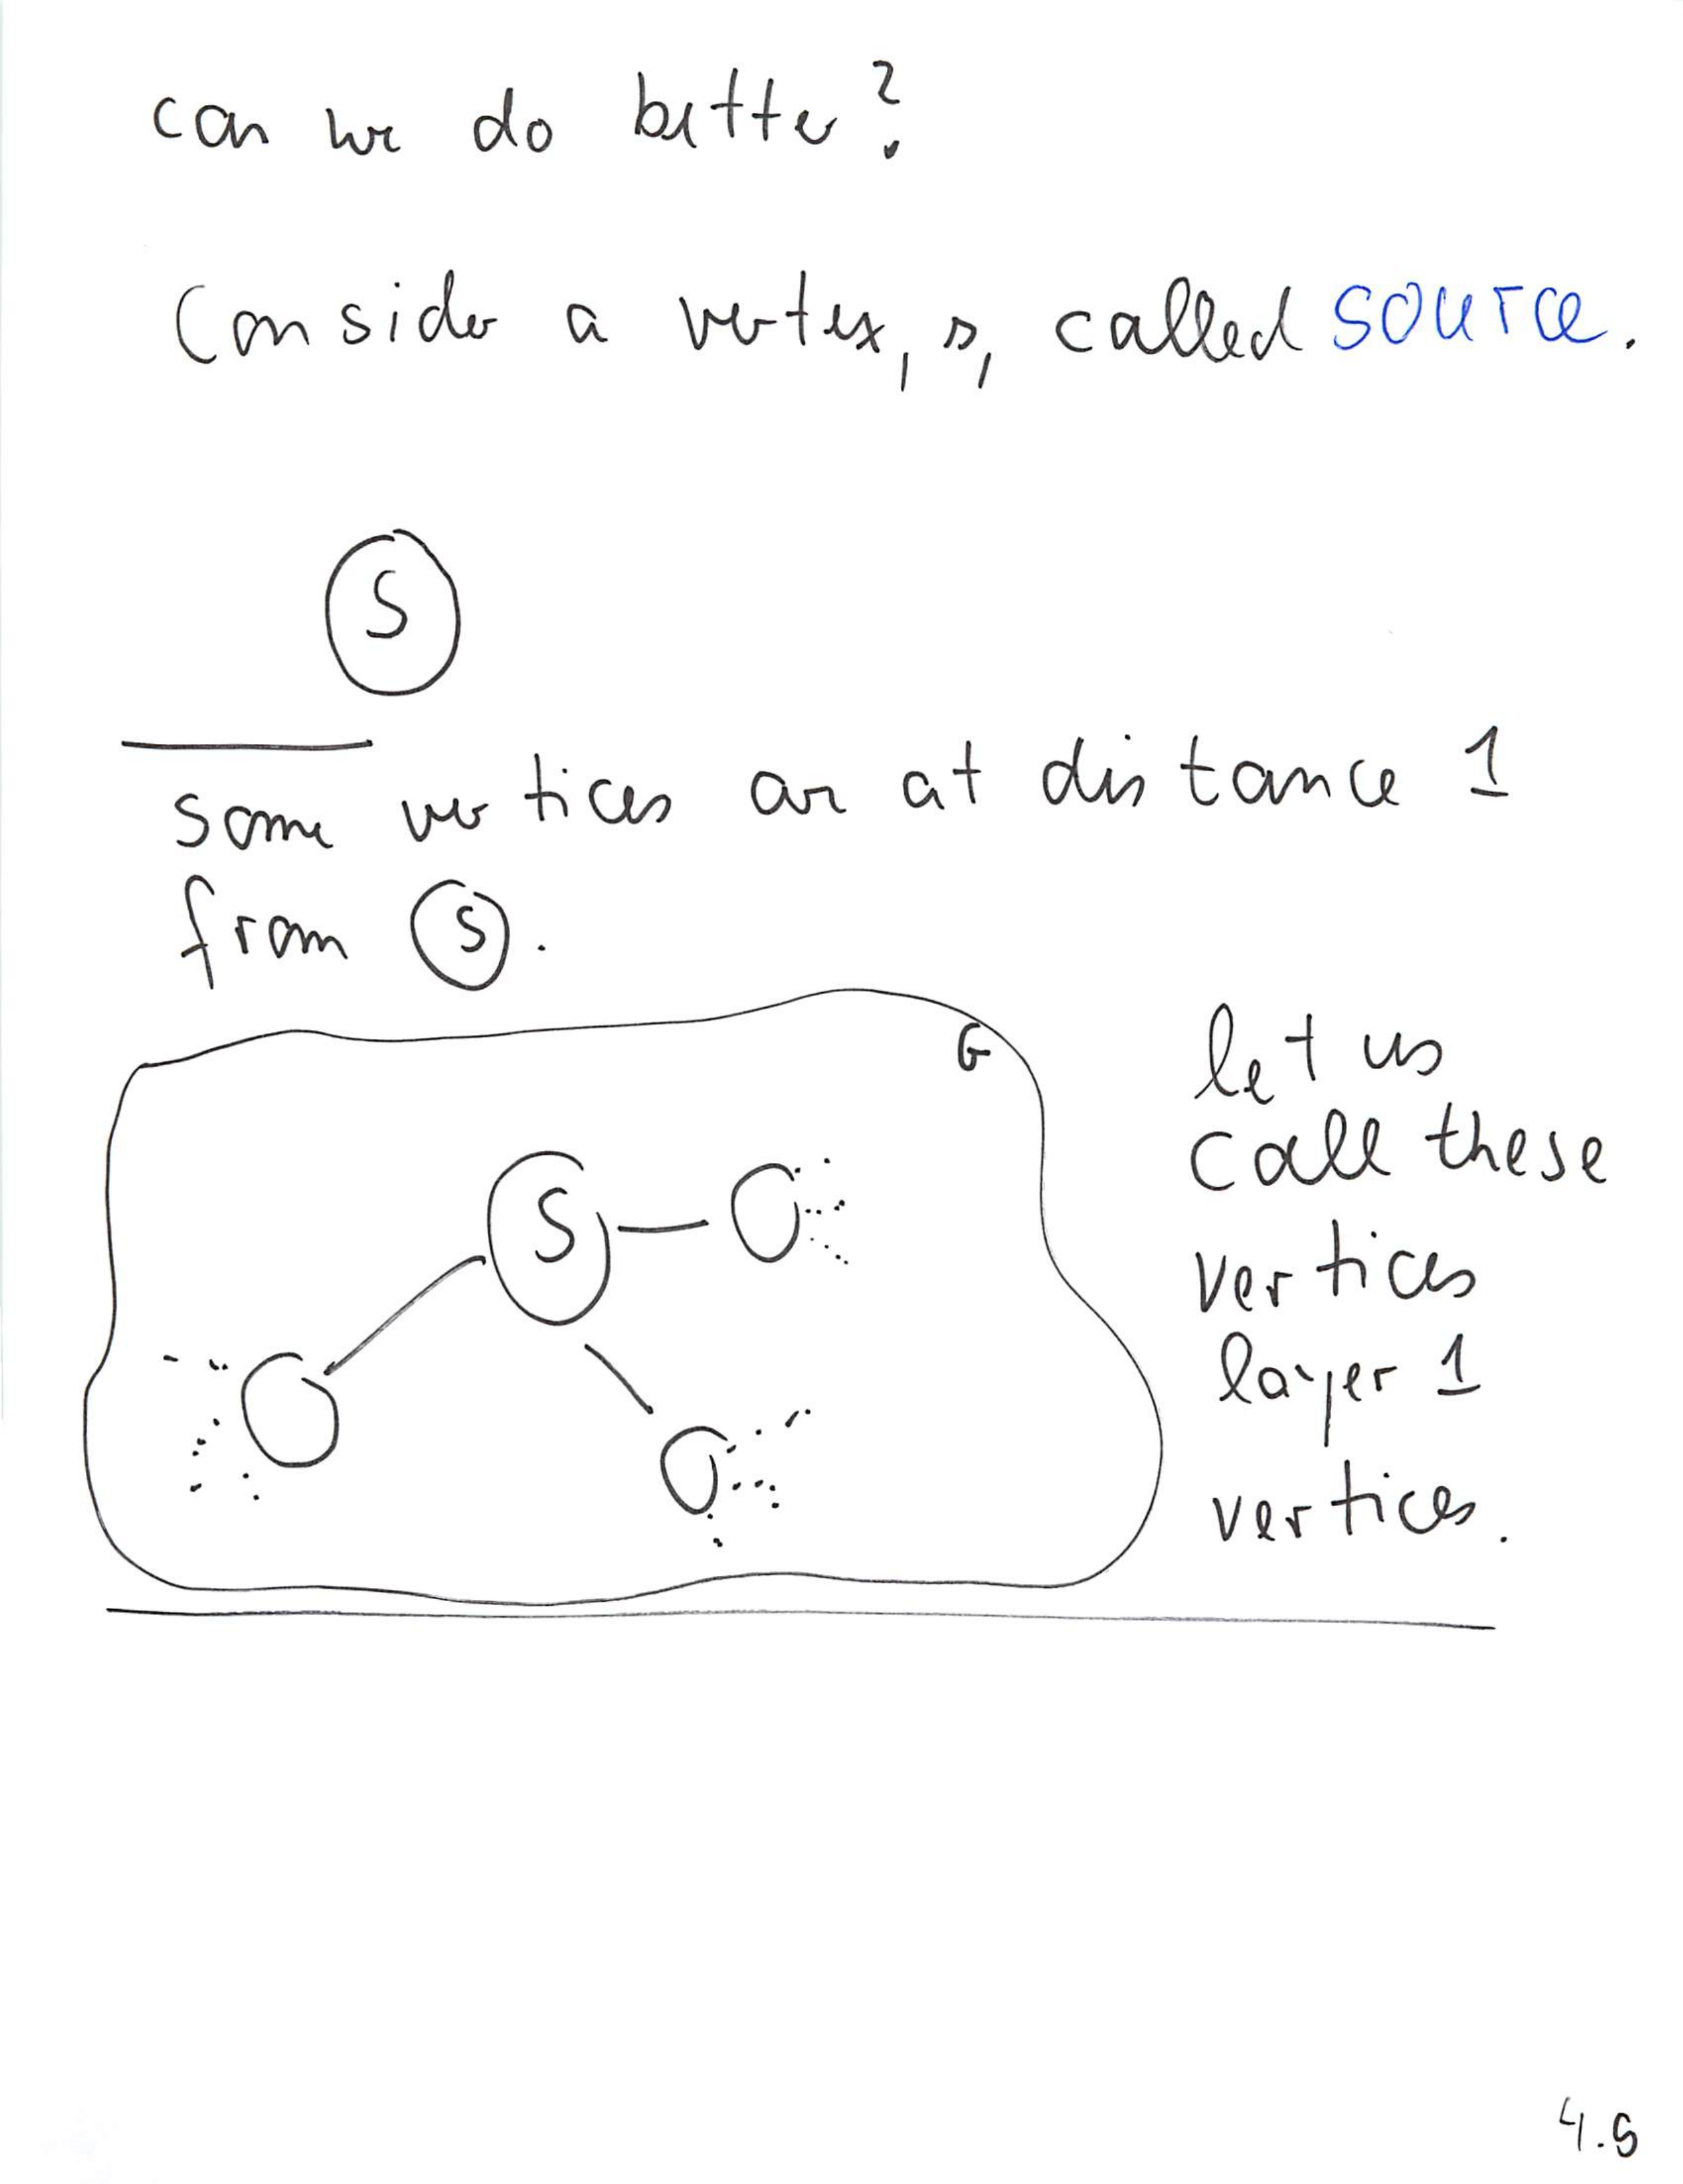 can we do better?
Consider a vertex, s, called source.
S
some vertices are at distance 1
from S.
G
let us
call these
S
vertices
layer 1
vertices.
4.5